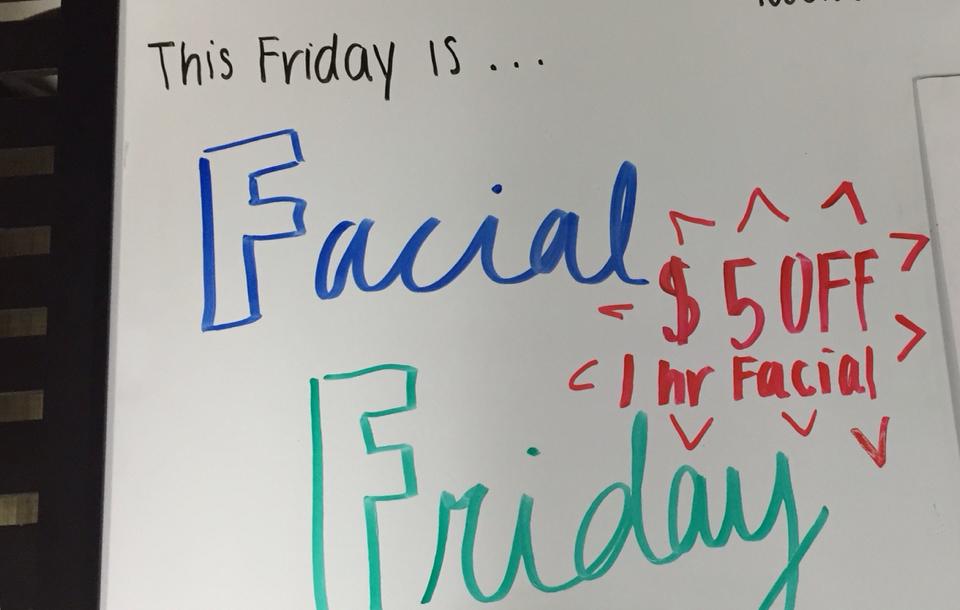 This Friday is ...
Facial
$5 OFF
1 hr Facial
Friday